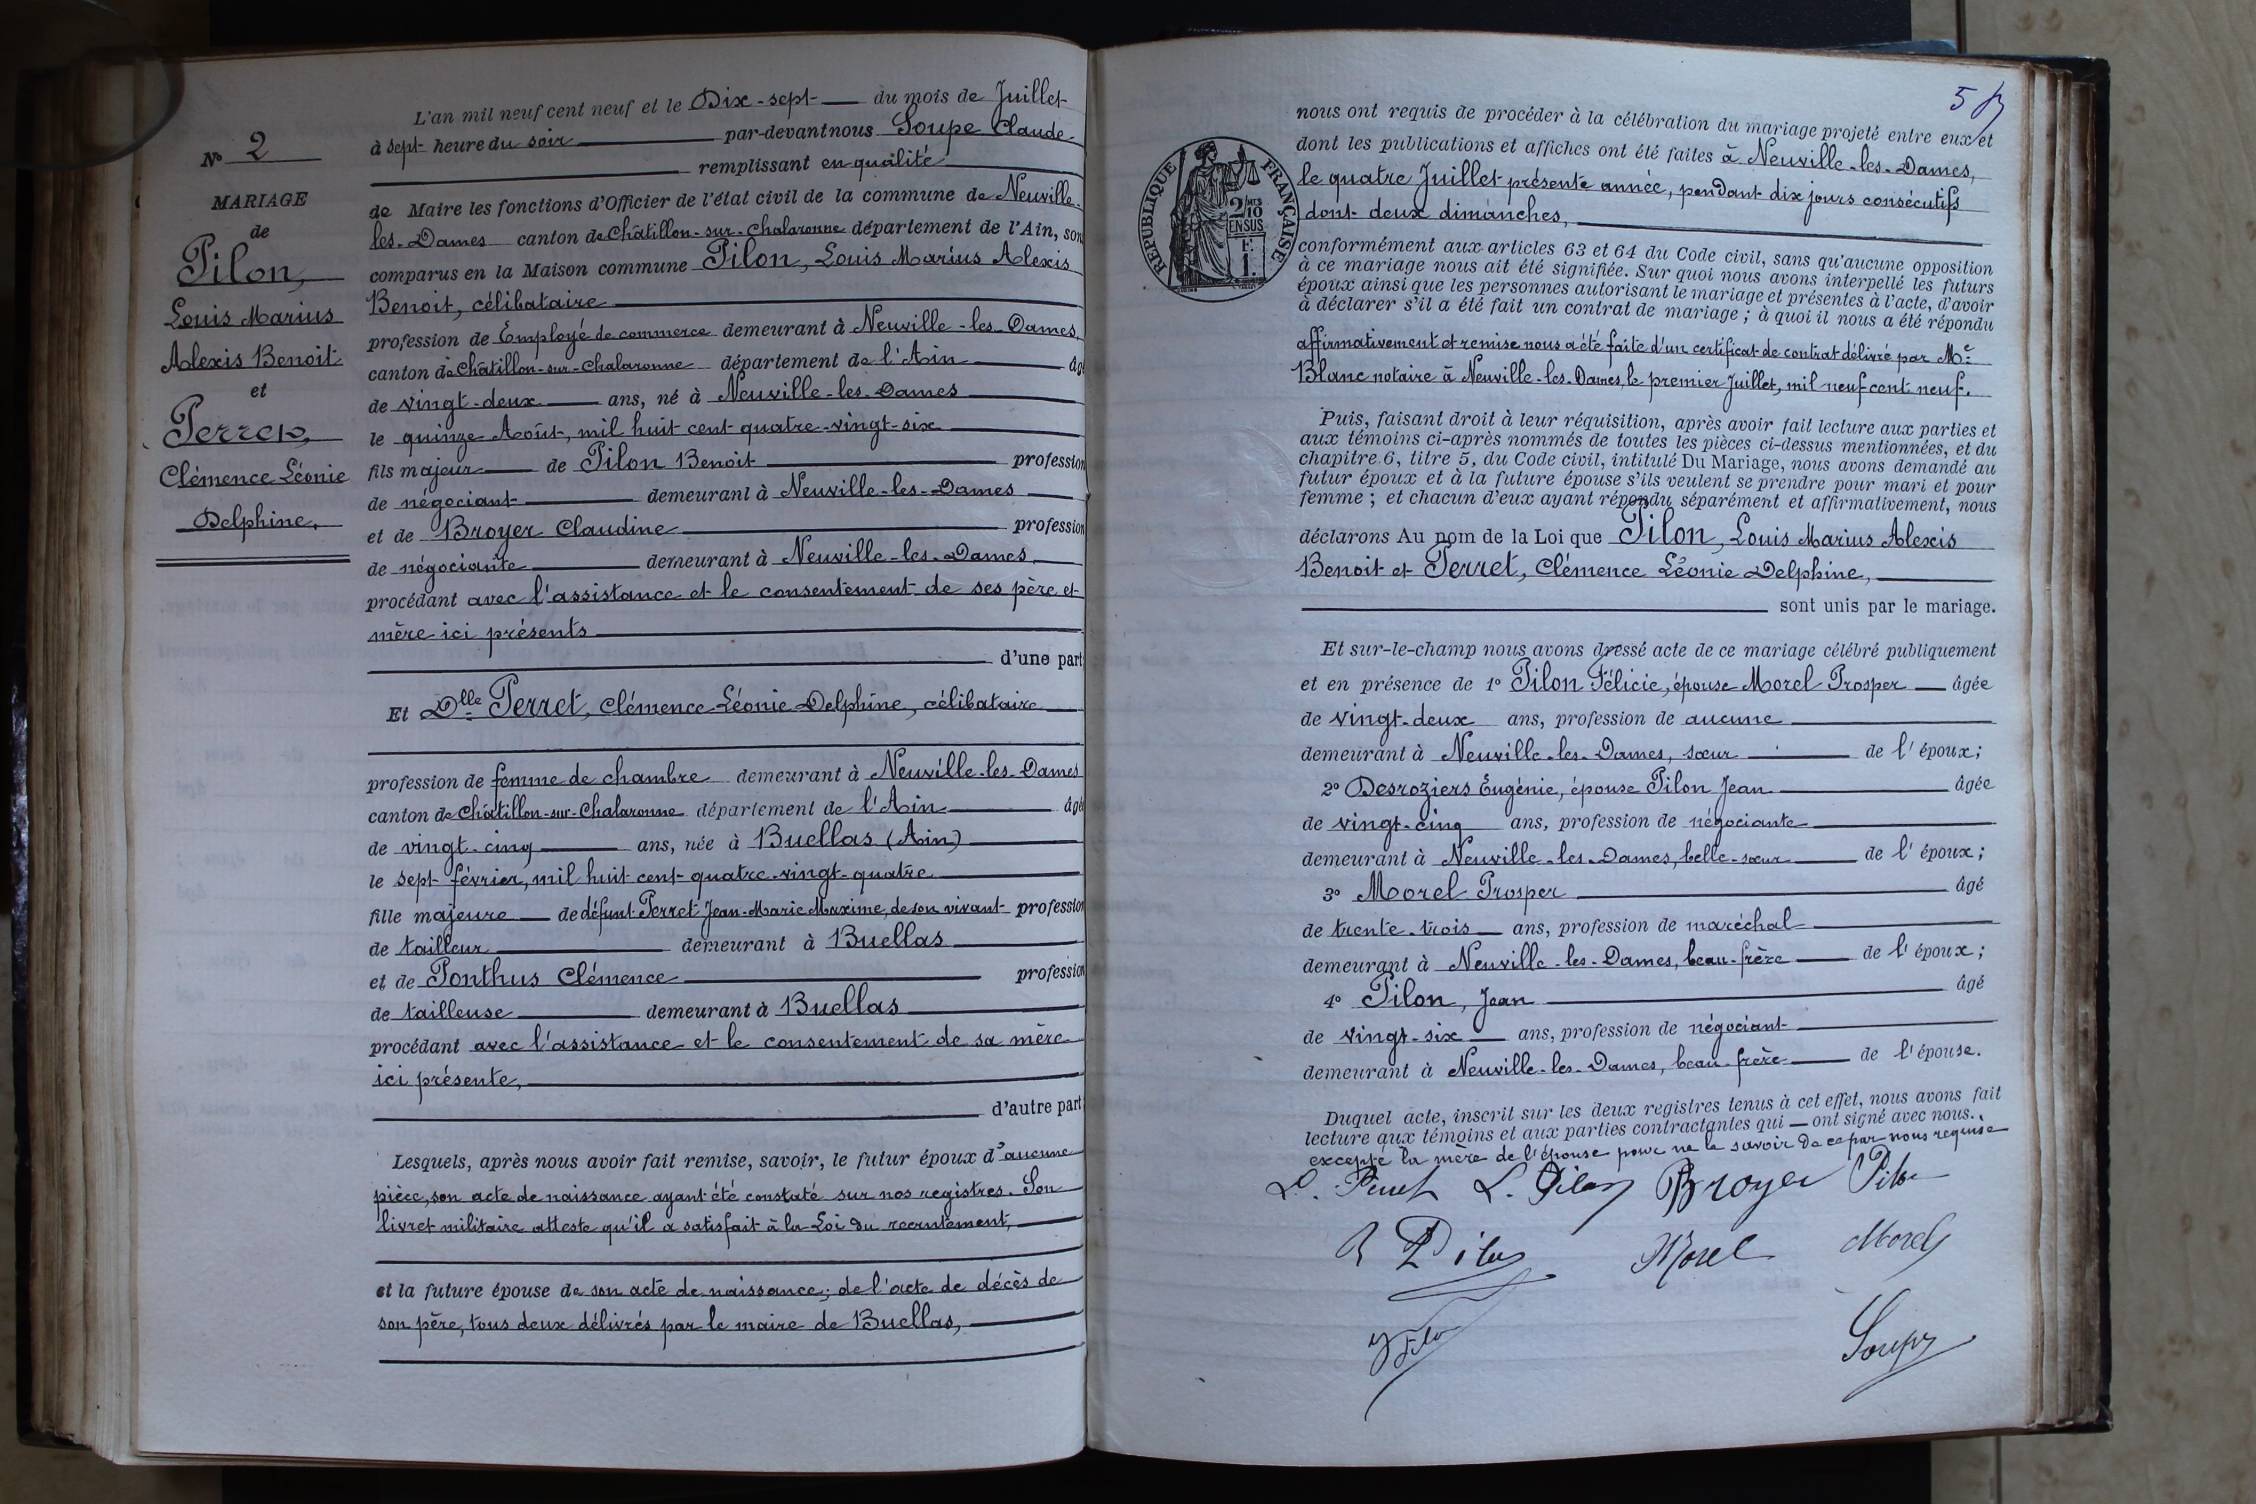 L'an mil neuf cent neuf et le Dix-sept du mois de Juillet
à sept heure du soir par-devant nous Soupe Claude
remplissant en qualité
de Maire les fonctions d'Officier de l'état civil de la commune de Neuville-
les-Dames canton de Châtillon-sur-Chalaronne département de l'Ain, son
comparus en la Maison commune Pilon, Louis Marius Alexis
Benoit, célibataire
profession de Employé de commerce demeurant à Neuville-les-Dames,
canton de Châtillon-sur-Chalaronne département de l'Ain âgé
de vingt-deux ans, né à Neuville-les-Dames
le quinze Août, mil huit cent quatre-vingt-six
fils majeur de Pilon Benoit profession
de négociant demeurant à Neuville-les-Dames
et de Broyer Claudine profession
de négociante demeurant à Neuville-les-Dames
procédant avec l'assistance et le consentement de ses père et
mère ici présents
d'une part
Et Dlle Perret, Clémence Léonie Delphine, célibataire
profession de femme de chambre demeurant à Neuville-les-Dames
canton de Châtillon-sur-Chalaronne département de l'Ain âgé
de vingt-cinq ans, née à Buellas (Ain)
le sept février, mil huit cent quatre-vingt-quatre
fille majeure de défunt Perret Jean-Marie Maxime, de son vivant profession
de tailleur demeurant à Buellas
et de Ponthus Clémence profession
de tailleuse demeurant à Buellas
procédant avec l'assistance et le consentement de sa mère
ici présente,
d'autre part
Lesquels, après nous avoir fait remise, savoir, le futur époux d'aucune
pièce, son acte de naissance ayant été constaté sur nos registres. Son
livret militaire atteste qu'il a satisfait à la Loi du recrutement,
et la future épouse de son acte de naissance; de l'acte de décès de
son père, tous deux délivrés par le maire de Buellas,
No 2
MARIAGE
de
Pilon,
Louis Marius
Alexis Benoit
et
Perret,
Clémence Léonie
Delphine,
5
nous ont requis de procéder à la célébration du mariage projeté entre eux et
dont les publications et affiches ont été faites à Neuville-les-Dames,
le quatre Juillet présente année, pendant dix jours consécutifs
dont deux dimanches,
RÉPUBLIQUE FRANÇAISE
2/10 EN SUS
1 F.
conformément aux articles 63 et 64 du Code civil, sans qu'aucune opposition
à ce mariage nous ait été signifiée. Sur quoi nous avons interpellé les futurs
époux ainsi que les personnes autorisant le mariage et présentes à l'acte, d'avoir
à déclarer s'il a été fait un contrat de mariage ; à quoi il nous a été répondu
affirmativement et remise nous a été faite d'un certificat de contrat délivré par Me
Blanc notaire à Neuville-les-Dames, le premier Juillet, mil neuf cent neuf.
Puis, faisant droit à leur réquisition, après avoir fait lecture aux parties et
aux témoins ci-après nommés de toutes les pièces ci-dessus mentionnées, et du
chapitre 6, titre 5, du Code civil, intitulé Du Mariage, nous avons demandé au
futur époux et à la future épouse s'ils veulent se prendre pour mari et pour
femme ; et chacun d'eux ayant répondu séparément et affirmativement, nous
déclarons Au nom de la Loi que Pilon, Louis Marius Alexis
Benoit et Perret, Clémence Léonie Delphine,
sont unis par le mariage.
Et sur-le-champ nous avons dressé acte de ce mariage célébré publiquement
et en présence de 1° Pilon Félicie, épouse Morel Prosper âgée
de vingt-deux ans, profession de aucune
demeurant à Neuville-les-Dames, sœur de l'époux;
2° Desroziers Eugénie, épouse Pilon Jean âgée
de vingt-cinq ans, profession de négociante
demeurant à Neuville-les-Dames, belle-sœur de l'époux;
3° Morel Prosper âgé
de trente-trois ans, profession de maréchal
demeurant à Neuville-les-Dames, beau-frère de l'époux;
4° Pilon, Jean âgé
de vingt-six ans, profession de négociant
demeurant à Neuville-les-Dames, beau-frère de l'épouse.
Duquel acte, inscrit sur les deux registres tenus à cet effet, nous avons fait
lecture aux témoins et aux parties contractantes qui ont signé avec nous,
excepté la mère de l'épouse pour ne le savoir de ce par nous requise
L. Perret L. Pilon Broyer Pilon
Pilon Morel Morel
Soupe